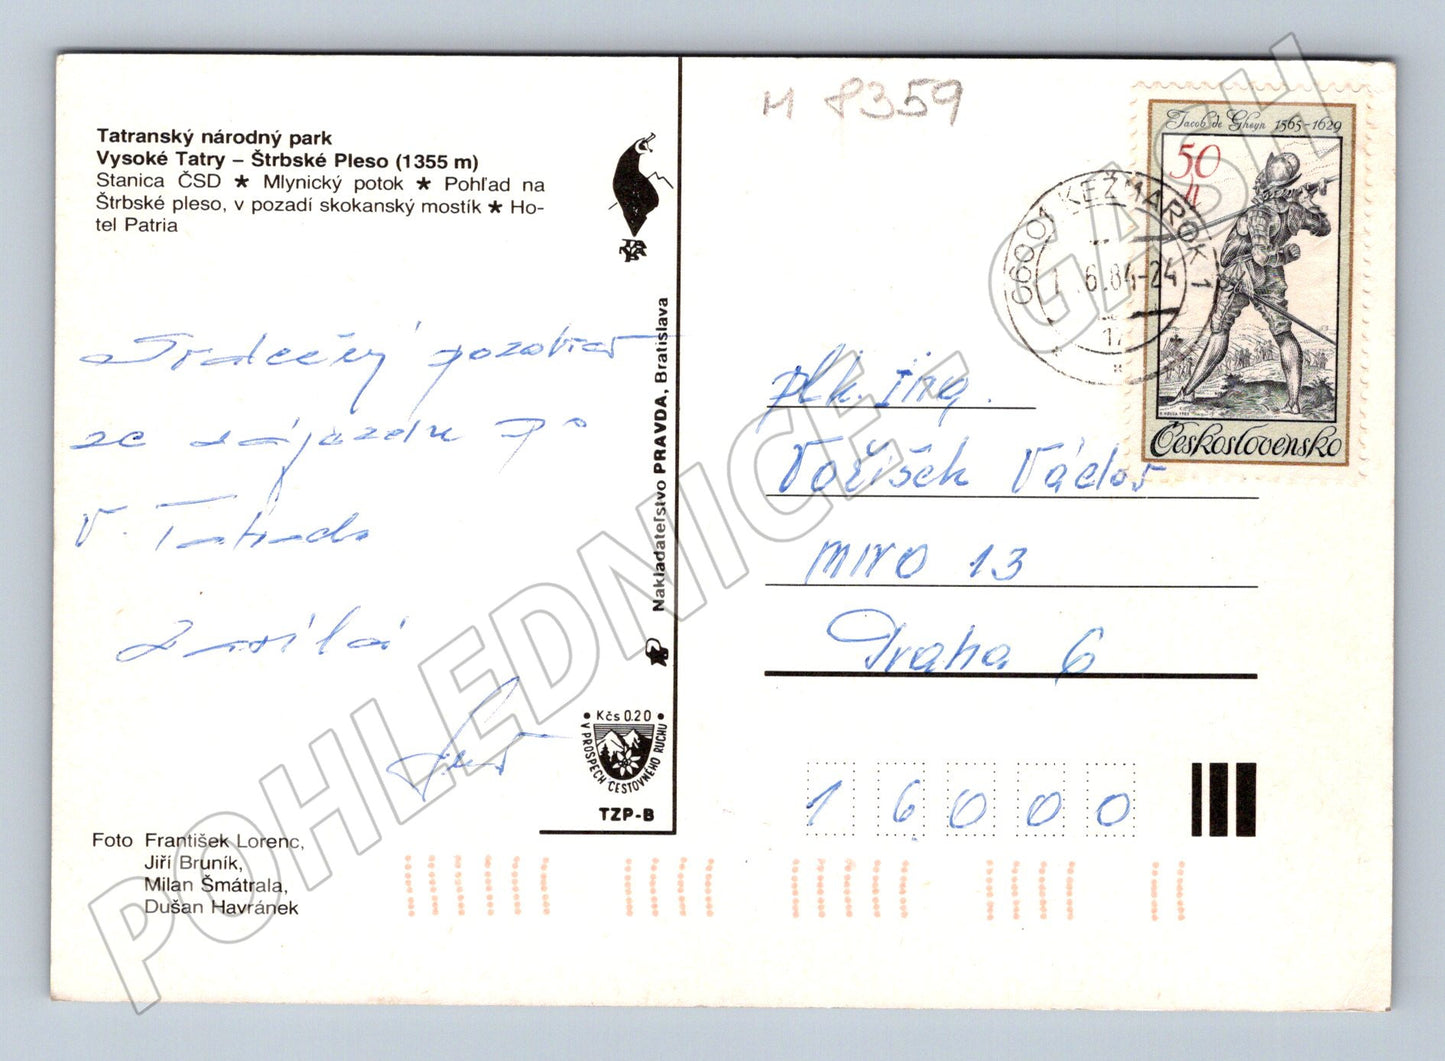 Tatranský národný park
Vysoké Tatry – Štrbské Pleso (1355 m)
Stanica ČSD ★ Mlynický potok ★ Pohľad na
Štrbské pleso, v pozadí skokanský mostík ★ Ho-
tel Patria
Srdečný pozdrav
ze zájezdu po
V. Tatrách
zasílá
Foto František Lorenc,
Jiří Bruník,
Milan Šmátrala,
Dušan Havránek
Nakladateľstvo PRAVDA, Bratislava
Kčs 0.20
V PROSPECH CESTOVNÉHO RUCHU
TZP-B
M 8359
Jacob de Gheyn 1565-1629
50 h
Československo
060 01 KEŽMAROK 1
6.84-24
plk. ing.
Voříšek Václav
MNO 13
Praha 6
16000
POHLEDNICE - GASH